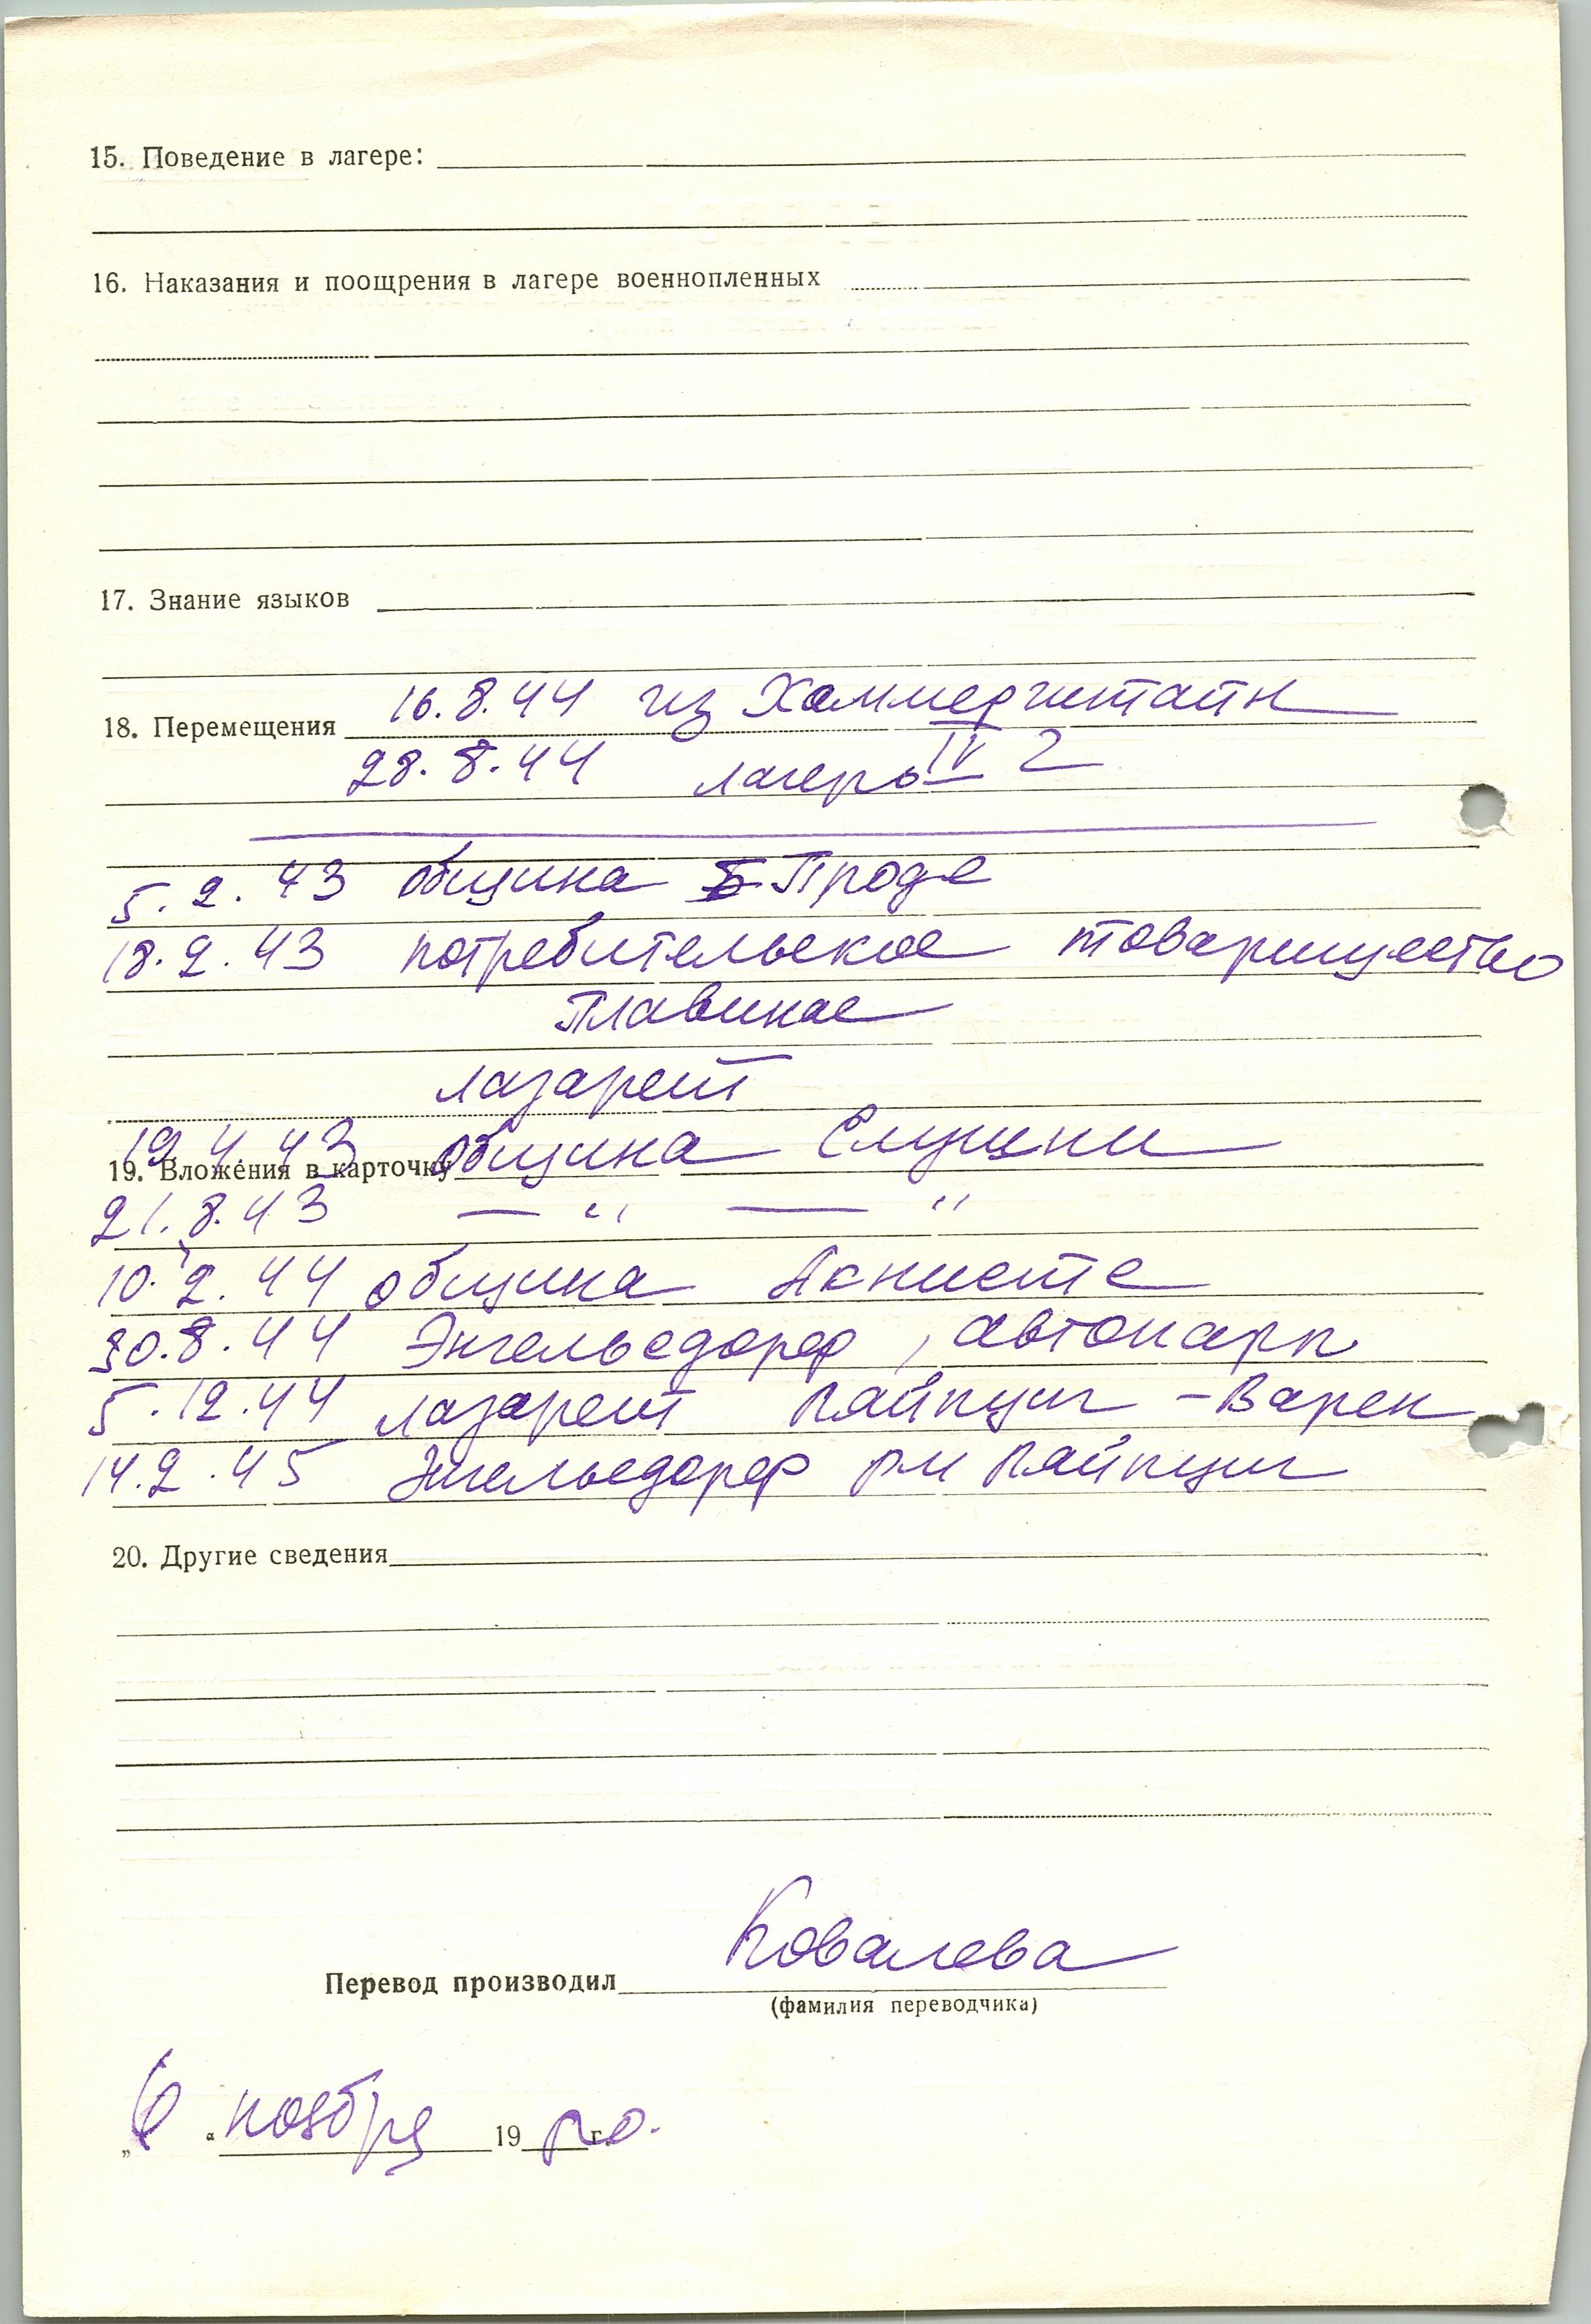 15. Поведение в лагере:
16. Наказания и поощрения в лагере военнопленных
17. Знание языков
18. Перемещения 16.8.44 из Хаммерштайн
28.8.44 лагерь IV G
5.2.43 община Проде
18.2.43 потребительское товарищество
Плавинае
лазарет
19.4.43 община Слушни
19. Вложения в карточку
21.8.43 — " — "
10.2.44 община Акнисте
30.8.44 Энгельсдорф, автопарк
5.12.44 лазарет Лайпциг - Варен
14.2.45 Энгельсдорф Лайпциг
20. Другие сведения
Перевод производил Ковалева
(фамилия переводчика)
" ноября 19 г.